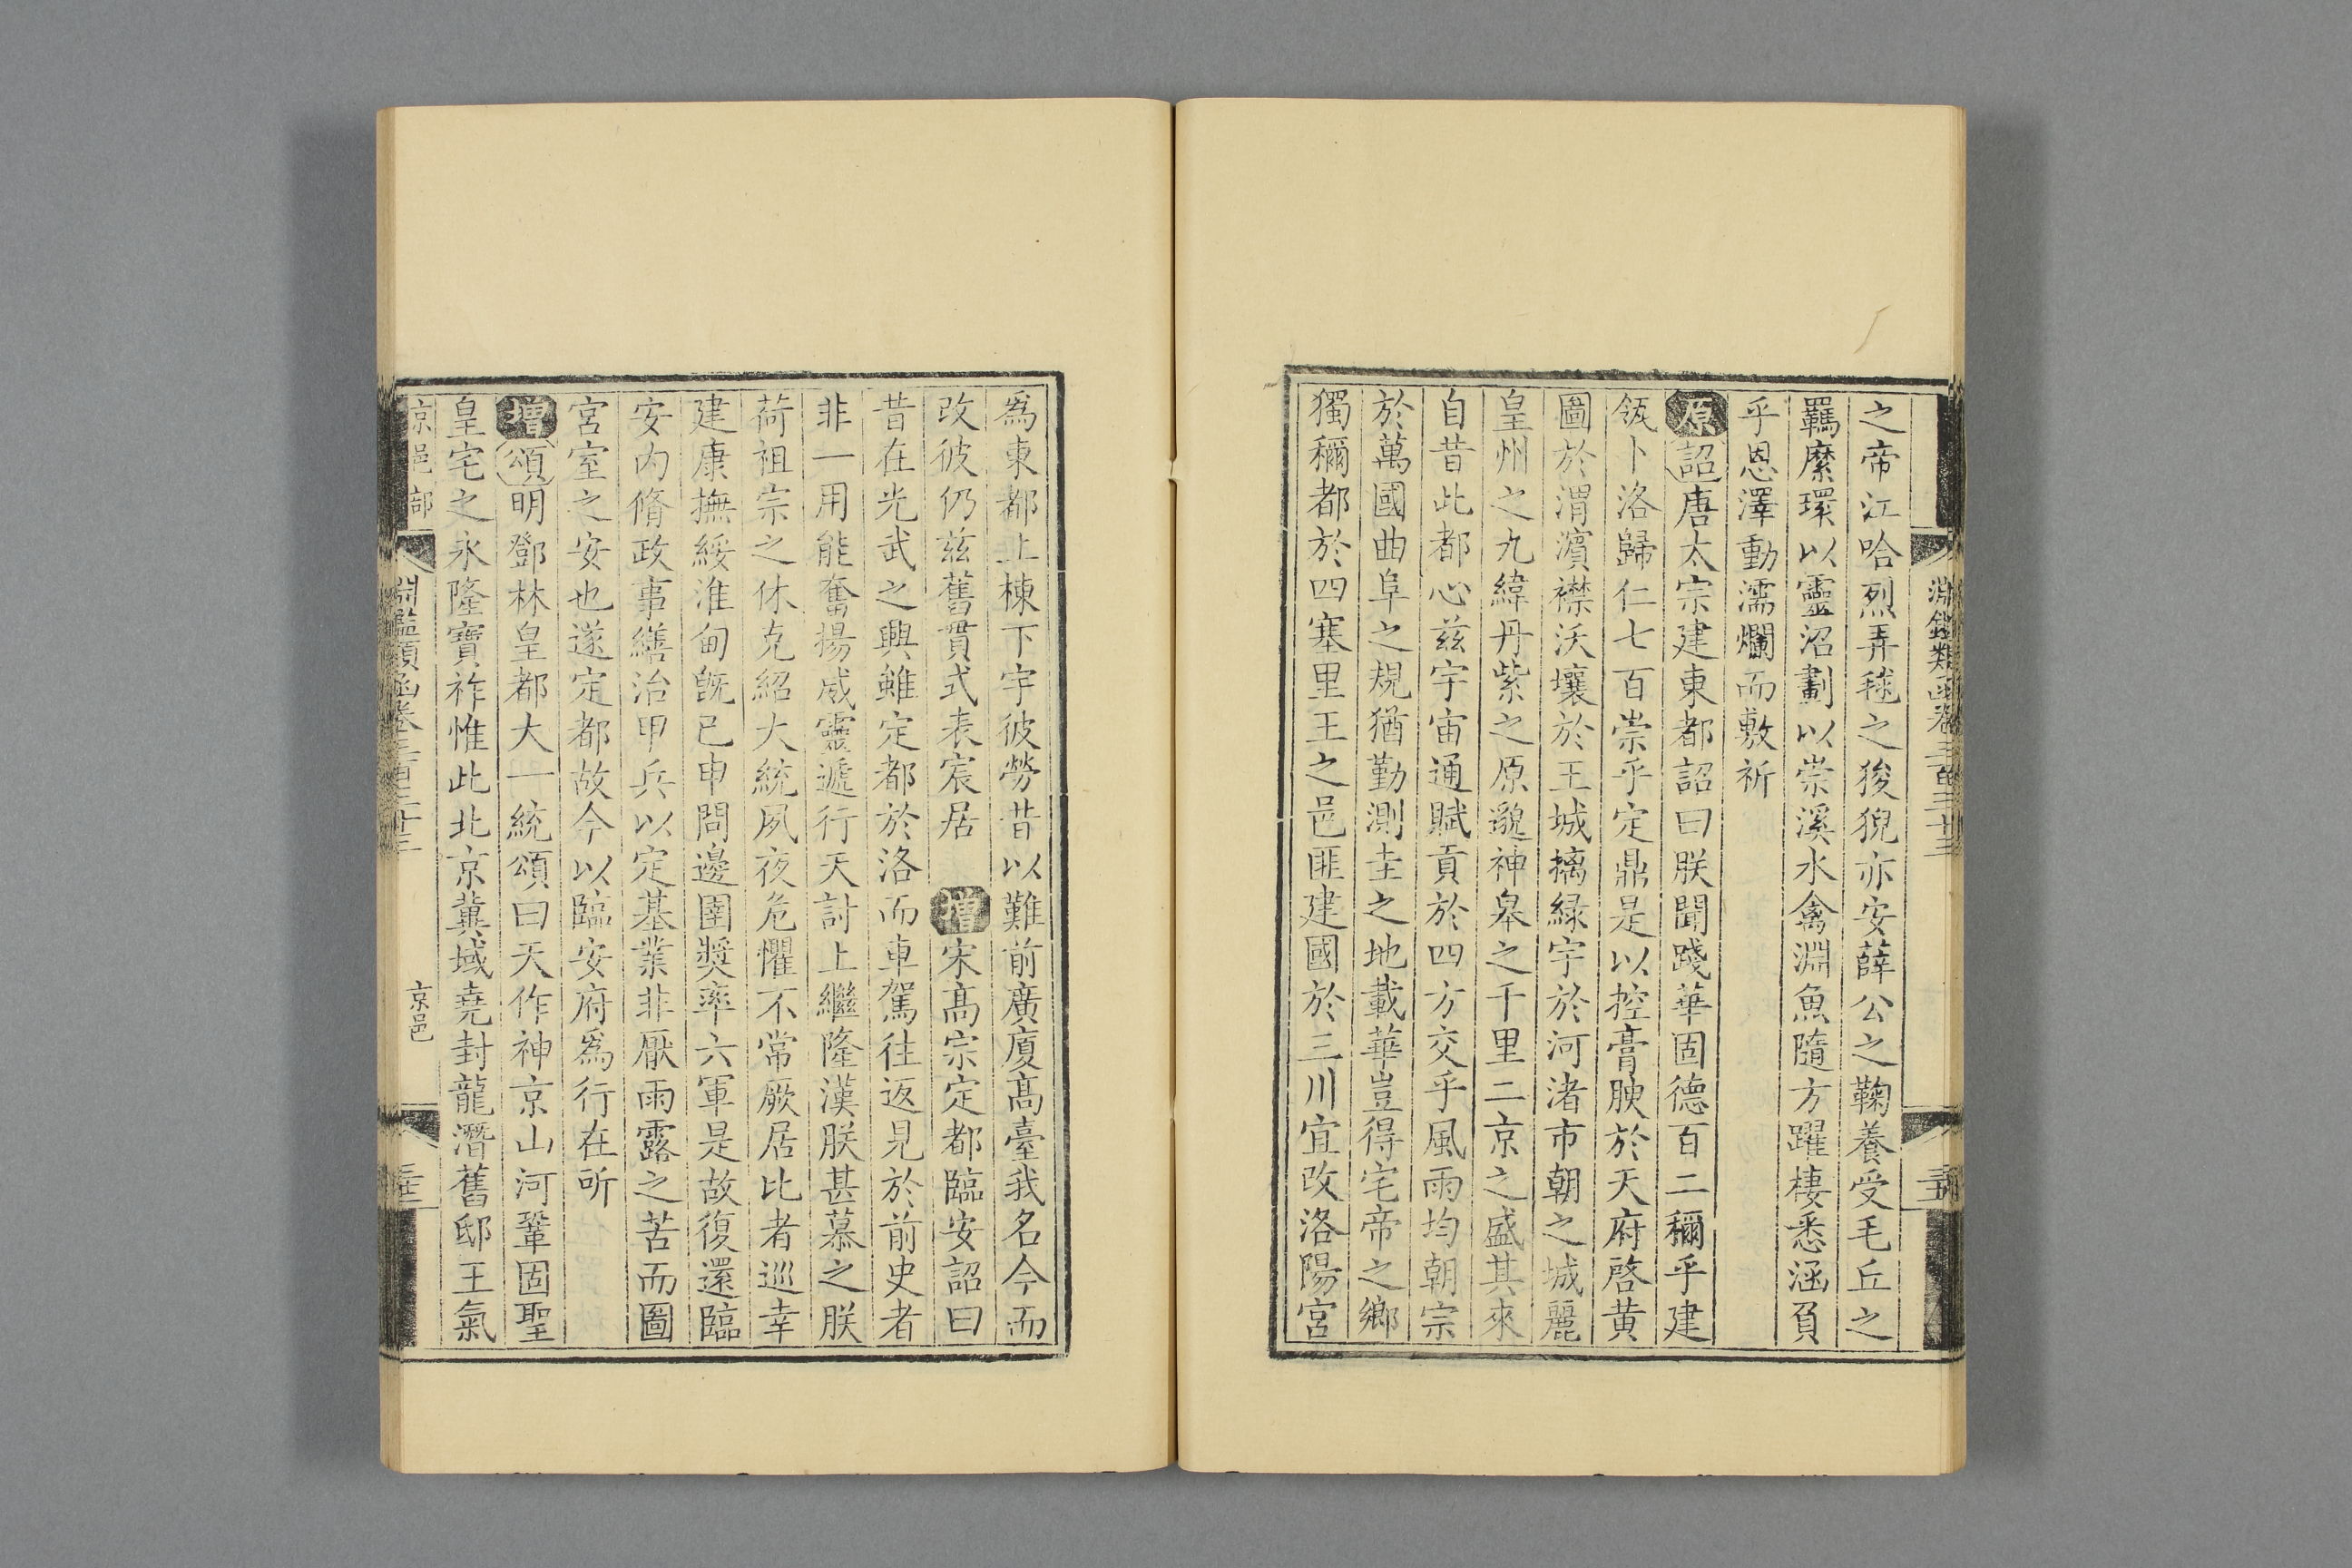 之帝江哈烈弄毬之狻猊亦安薛公之鞠養受毛丘之
羈縻環以靈沼劃以崇溪水禽淵魚隨方躍棲悉涵負
乎恩澤動濡爛而敷祈
原詔唐太宗建東都詔曰朕聞踐華固德百二稱乎建
瓴卜洛歸仁七百崇乎定鼎是以控膏腴於天府啓黄
圖於渭濱襟沃壤於王城摛緑宇於河渚市朝之城麗
皇州之九緯丹紫之原邈神皋之千里二京之盛其來
自昔此都心茲宇宙通賦貢於四方交乎風雨均朝宗
於萬國曲阜之規猶勤測圭之地載華豈得宅帝之鄉
獨稱都於四塞里王之邑匪建國於三川宜改洛陽宮
爲東都上棟下宇彼勞昔以難前廣廈髙臺我名今而
改彼仍茲舊貫式表宸居 增宋髙宗定都臨安詔曰
昔在光武之興雖定都於洛而車駕往返見於前史者
非一用能奮揚威靈遞行天討上繼隆漢朕甚慕之朕
荷祖宗之休克紹大統夙夜危懼不常厥居比者巡幸
建康撫綏淮甸旣已申問邊圉奬率六軍是故復還臨
安内脩政事繕治甲兵以定基業非厭雨露之苦而圖
宮室之安也遂定都故今以臨安府爲行在所
增頌明鄧林皇都大一統頌曰天作神京山河鞏固聖
皇宅之永隆寶祚惟此北京冀域堯封龍潛舊邸王氣
京邑部 淵鑑類函卷三百三十三 京邑